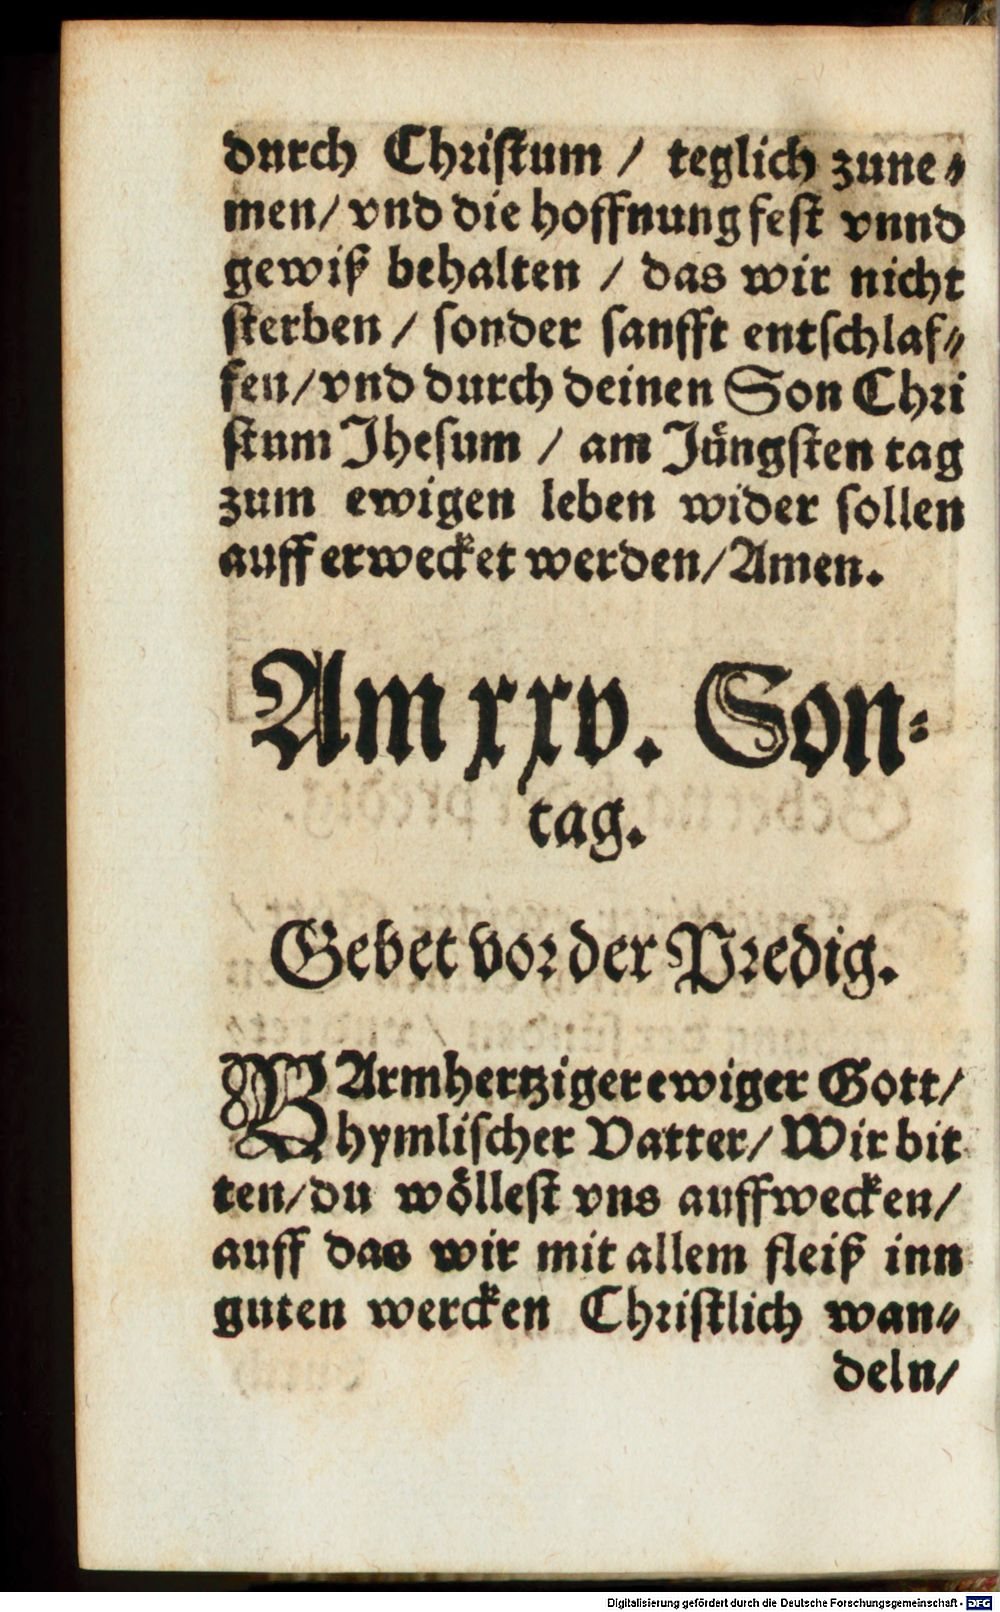 durch Christum / teglich zune⸗
men/ vnd die hoffnung fest vnnd
gewiß behalten / das wir nicht
sterben / sonder sanfft entschlaf⸗
fen/vnd durch deinen Son Chri
stum Jhesum / am Jüngsten tag
zum ewigen leben wider sollen
auff erwecket werden/Amen.
Am xxv. Son⸗
tag.
Gebet vor der Predig.
BArmhertziger ewiger Gott/
hymlischer Vatter/ Wir bit
ten/du wöllest vns auffwecken/
auff das wir mit allem fleiß inn
guten wercken Christlich wan⸗
deln/
Digitalisierung gefördert durch die Deutsche Forschungsgemeinschaft - DFG